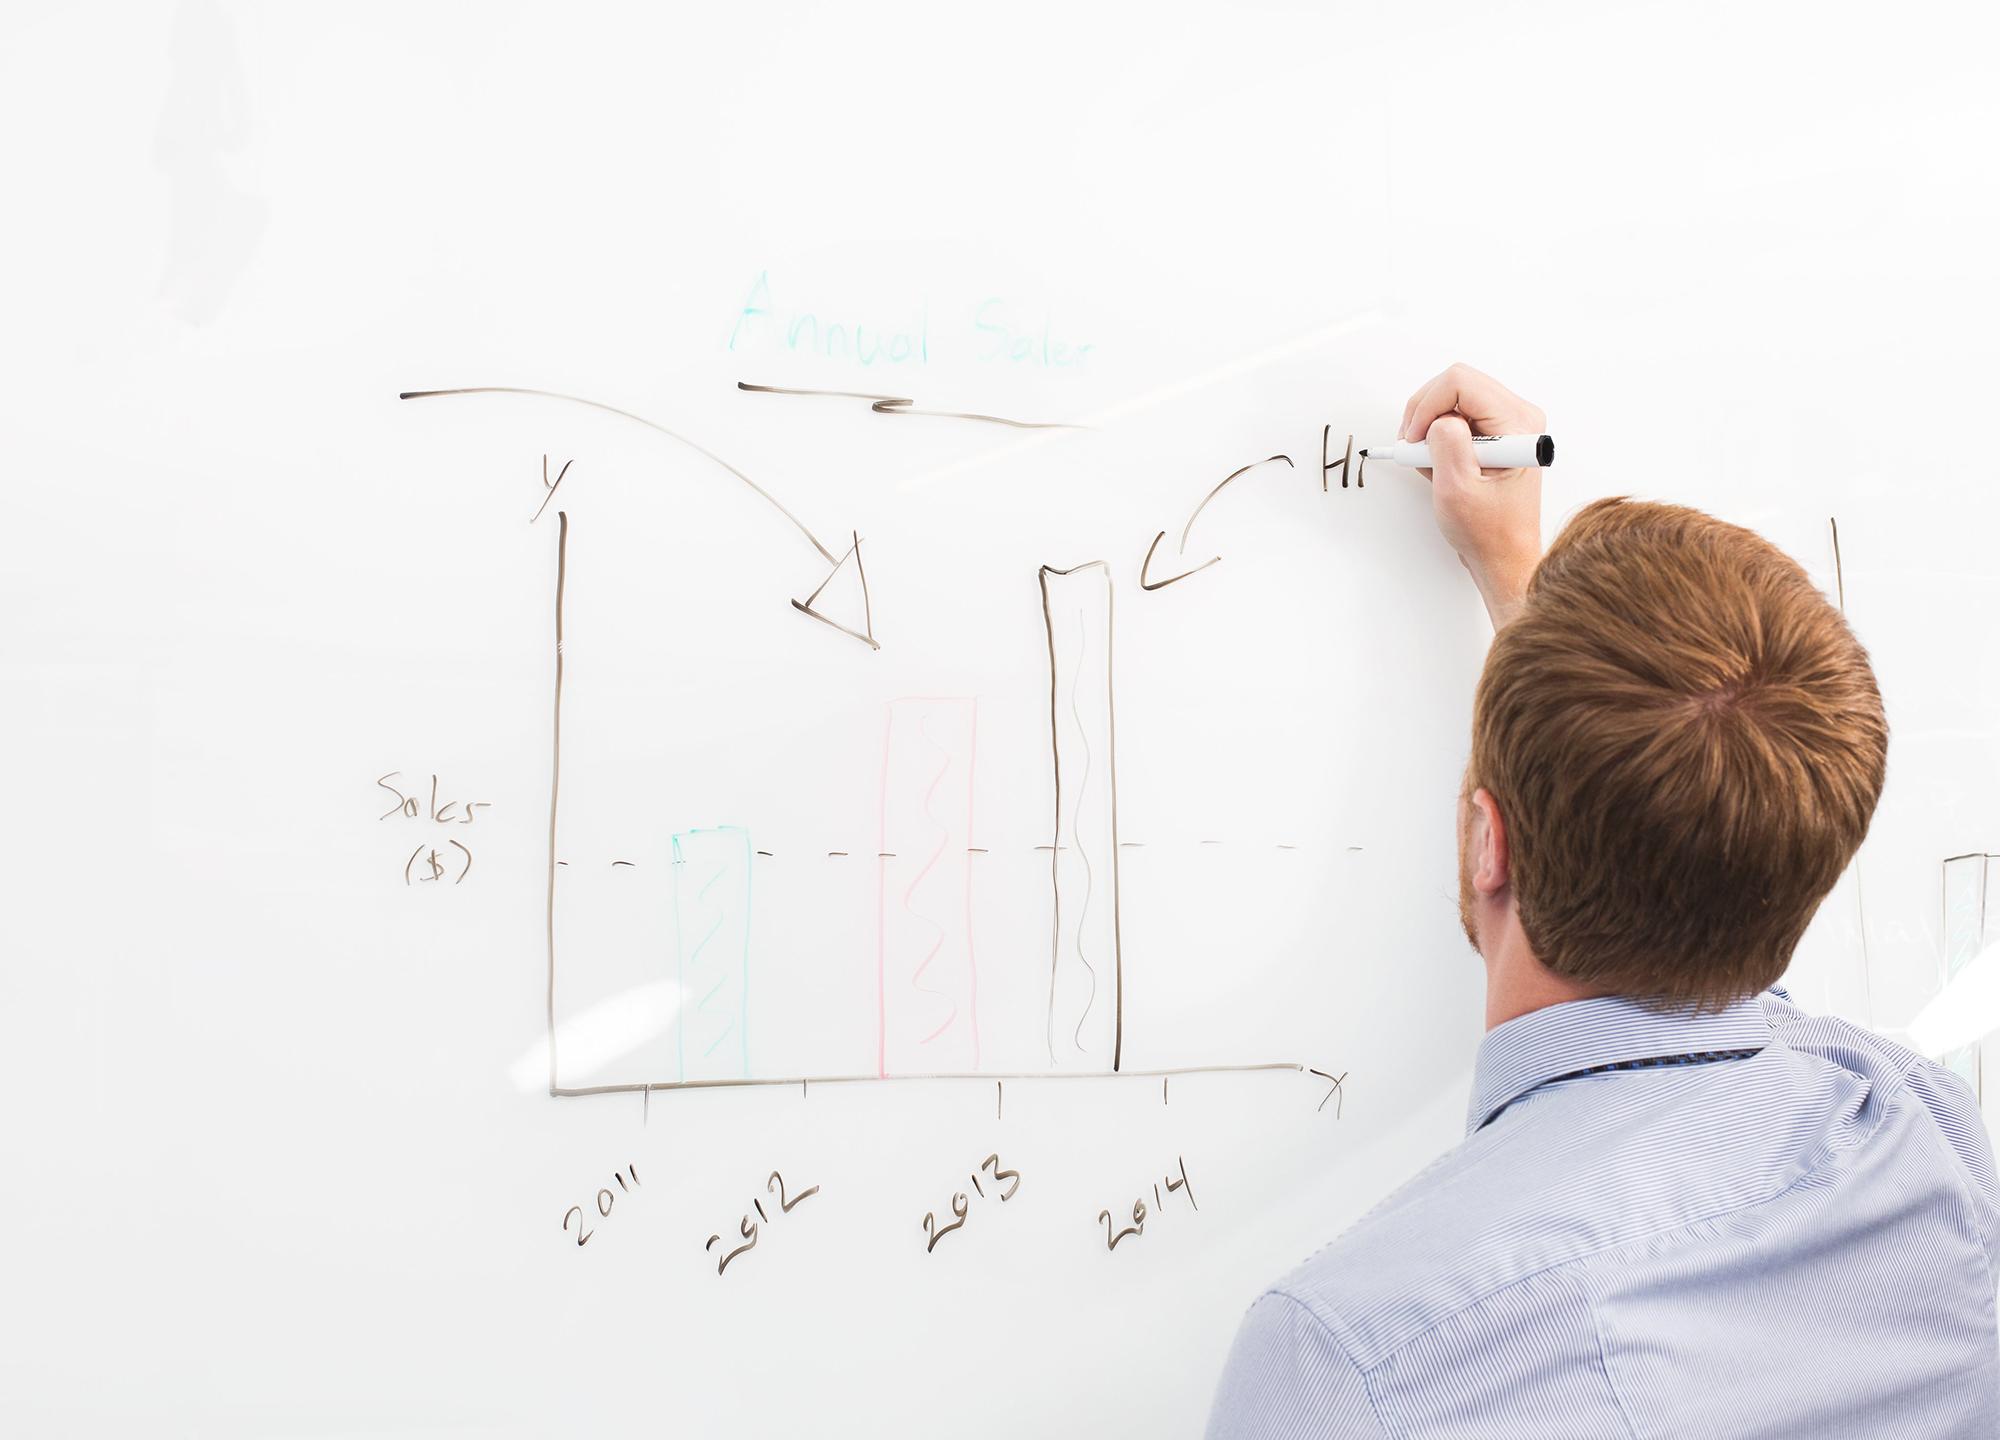 Annual Sales
Hi
y
Sales
($)
x
2011
2012
2013
2014